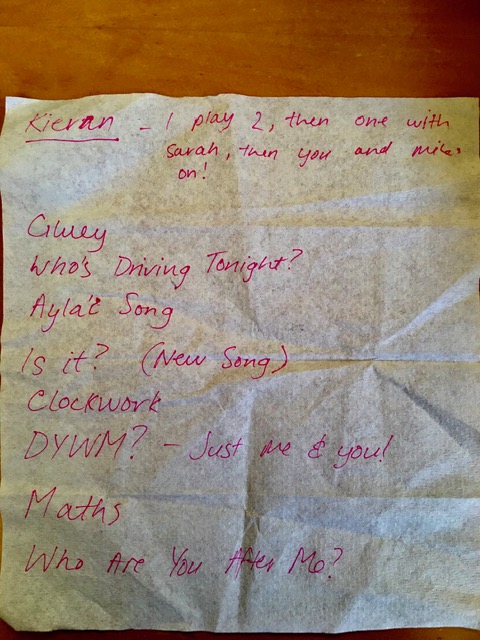 Kieran - I play 2, then one with
Sarah, then you and Mike
on!
Gluey
Who's Driving Tonight?
Ayla's Song
Is it? (New Song)
Clockwork
DYWM? - Just me & you!
Maths
Who Are You After Me?